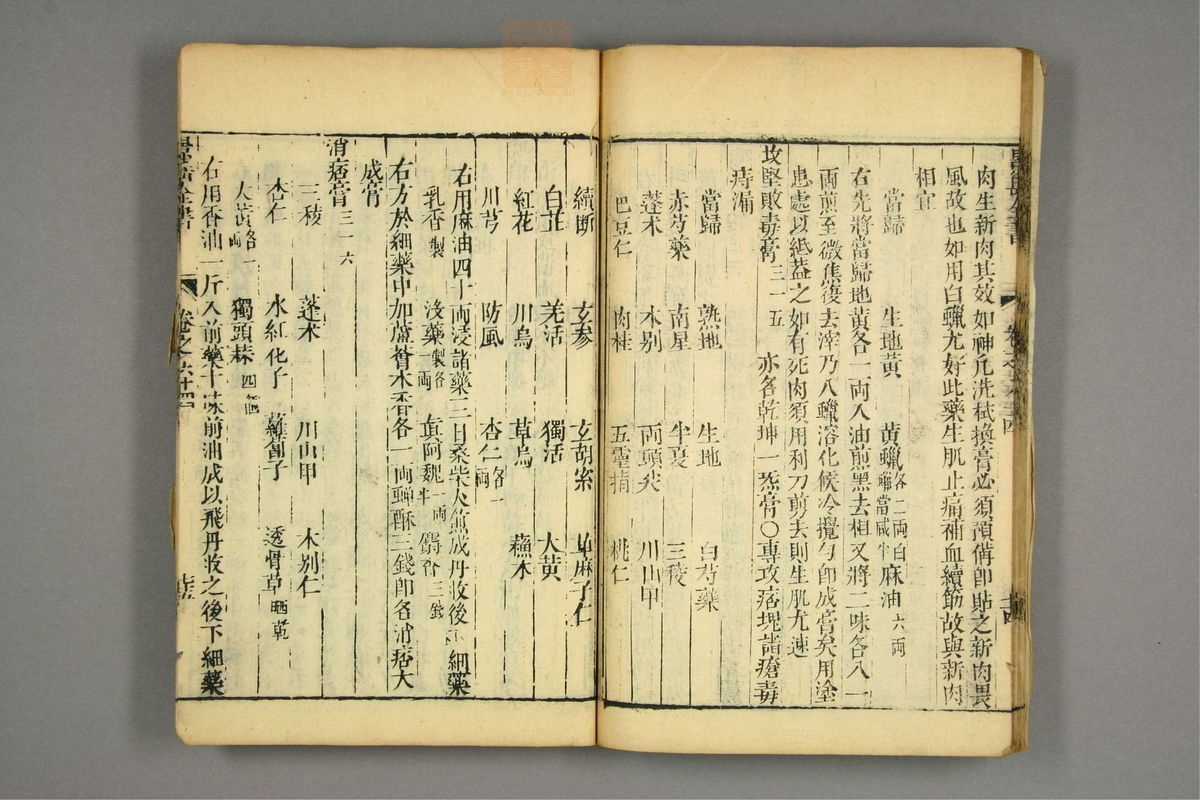 肉生新肉其效如神凡洗拭換膏必須預備即貼之新肉畏
風故也如用白蠟尤好此藥生肌止痛補血續筋故與新肉
相宜
當歸 生地黃 黃蠟各二兩白蠟當減半 麻油六兩
右先將當歸地黃各一兩入油煎黑去柤又將二味各入一
兩煎至微焦復去滓乃入蠟溶化候冷攪勻即成膏矣用塗
患處以紙蓋之如有死肉須用利刀剪去則生肌尤速
攻堅敗毒膏三一五 亦名乾坤一炁膏○專攻痞塊諸瘡毒
痔漏
當歸 熟地 生地 白芍藥
赤芍藥 南星 半夏 三稜
蓬朮 木別 兩頭尖 川山甲
巴豆仁 肉桂 五靈脂 桃仁
續斷 玄參 玄胡索 蓖麻子仁
白芷 羌活 獨活 大黃
紅花 川烏 草烏 蘇木
川芎 防風 杏仁各一兩
右用麻油四十兩浸諸藥三日桑柴火煎成丹收後下細藥
乳香製 沒藥製各一兩 真阿魏一兩半 麝香三錢
右方於細藥中加蘆薈木香各一兩蟬酥三錢即名消痞大
成膏
消痞膏三一六
三稜 蓬朮 川山甲 木別仁
杏仁 水紅花子 蘿蔔子 透骨草晒乾
大黃各一兩 獨頭蒜四個
右用香油一斤入前藥十味煎油成以飛丹收之後下細藥
卷之六十四